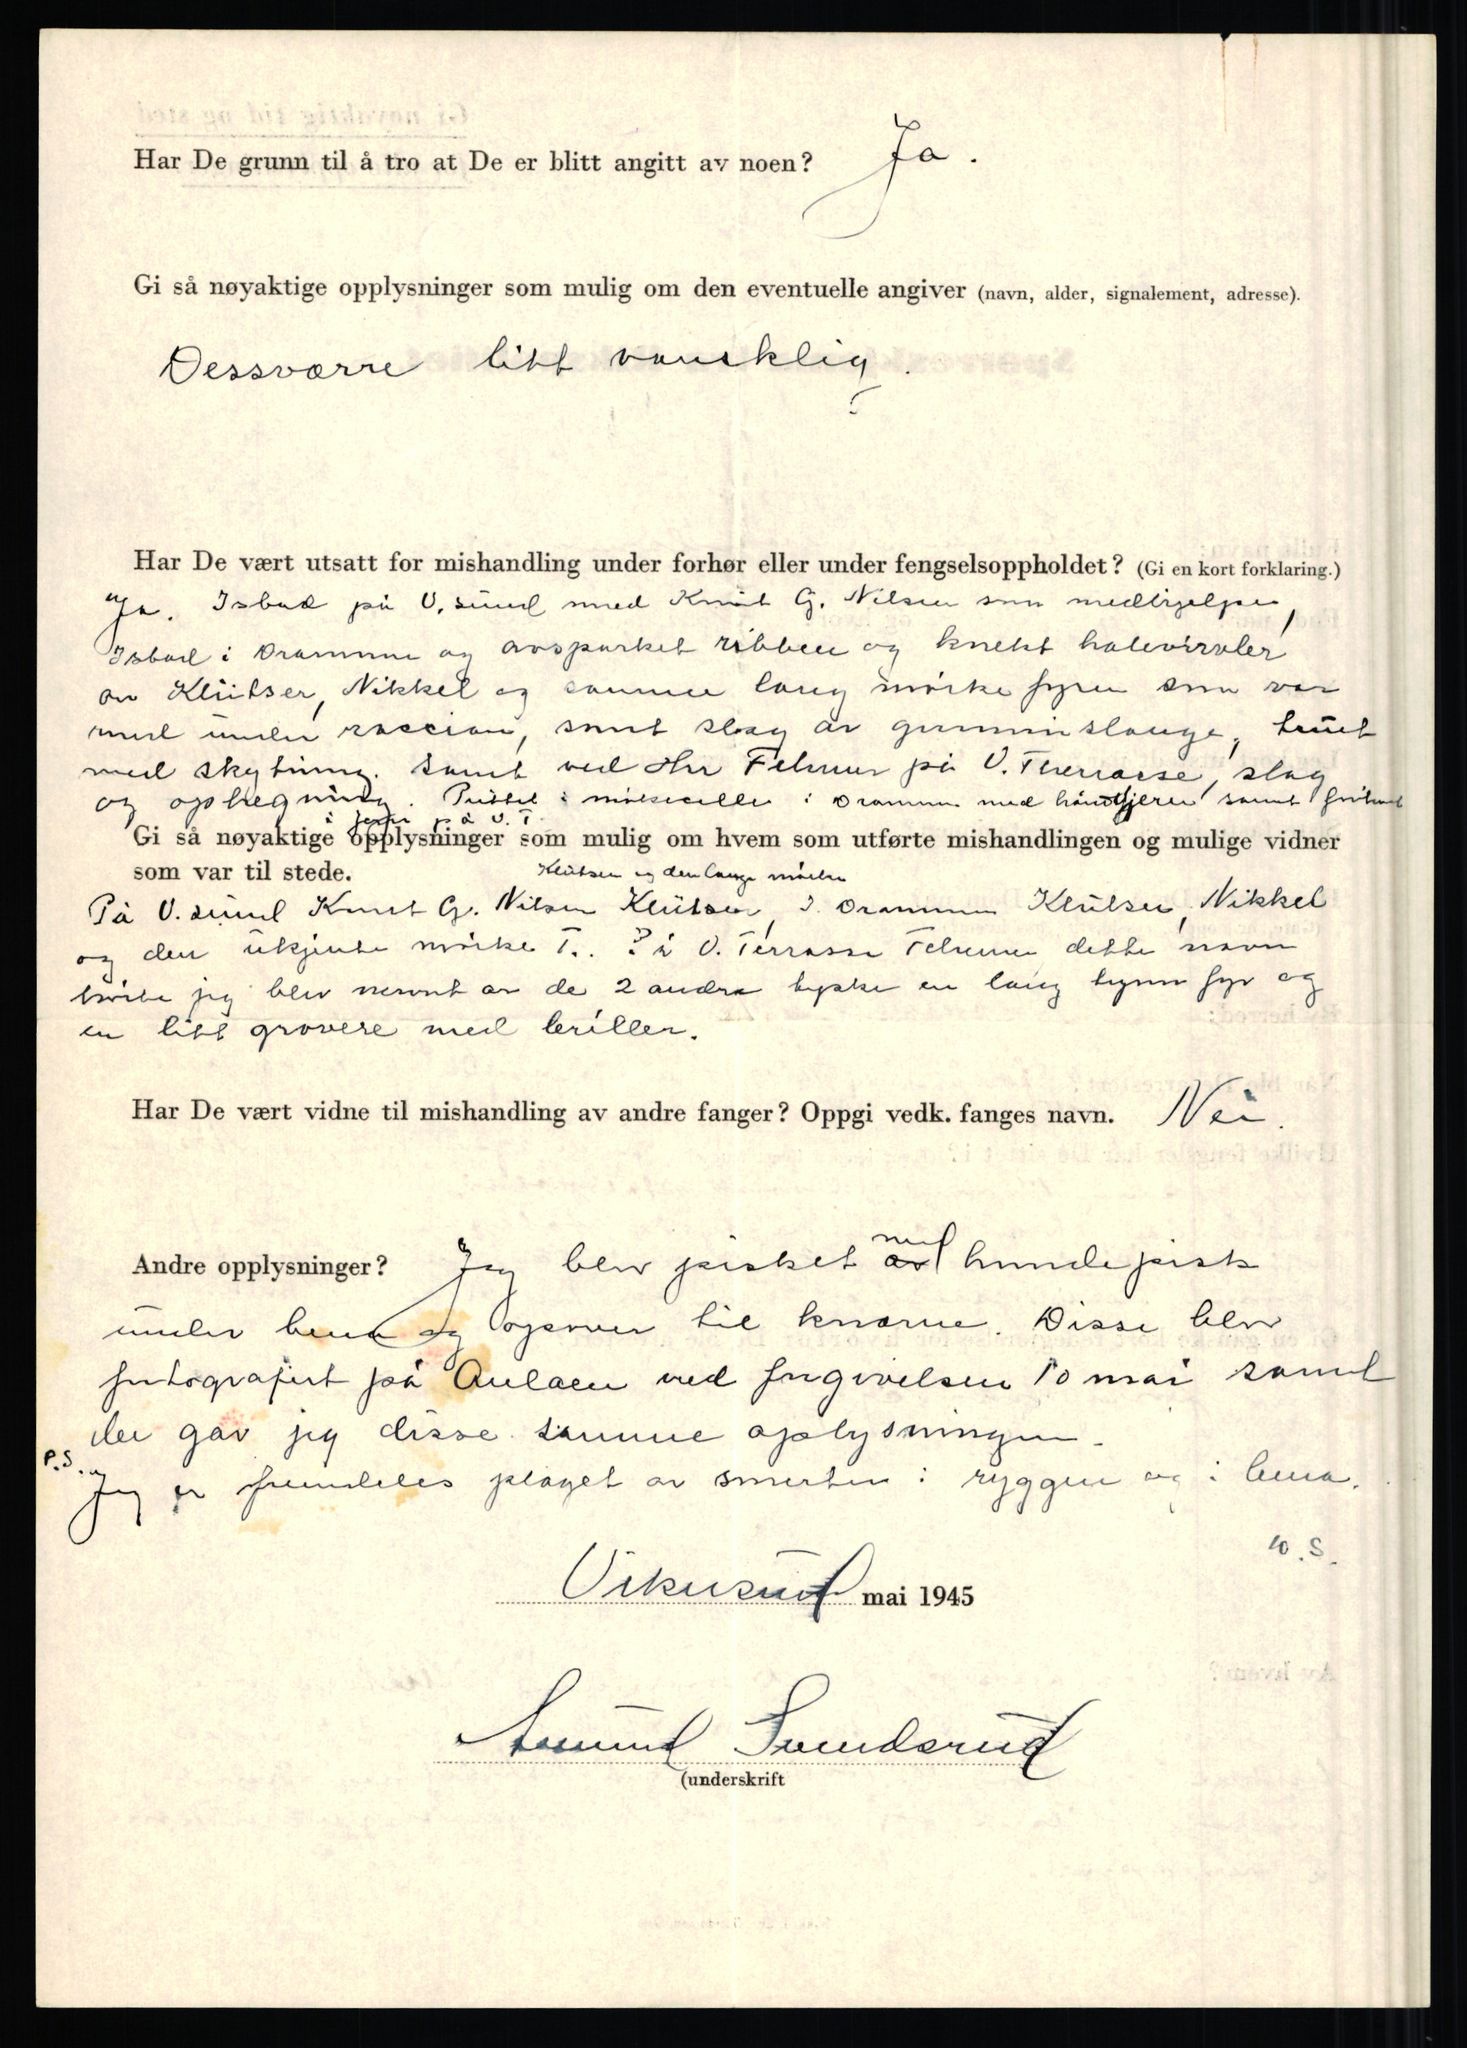 Har De grunn til å tro at De er blitt angitt av noen? Ja.
Gi så nøyaktige opplysninger som mulig om den eventuelle angiver (navn, alder, signalement, adresse).
Dessværre litt vanskelig.
Har De vært utsatt for mishandling under forhør eller under fengselsoppholdet? (Gi en kort forklaring.)
Ja. Isbad på V. sund med Knut G. Nilsen som medhjelper,
Isbad i Drammen og avsparket ribben og knekt halevirvler
av Klütser, Nikkel og samme lang mørke fyren som var
med under raccian, samt slag av gummislange, truet
med skytning. Samt ved Herr Fehmer på V. Therrasse, slag
og ophegning. i mørkecelle i Drammen med håndjern samt
på V. T.
Gi så nøyaktige opplysninger som mulig om hvem som utførte mishandlingen og mulige vidner
som var til stede. Klütsen og den lange mørke
På V. sund Knut G. Nilsen Klütsen, I Drammen Klütsen, Nikkel
og den ukjente mørke T.. På V. Terrasse Fehmer dette navn
hørte jeg blev nevnt av de 2 andre tyske en lang tynn fyr og
en litt grovere med briller.
Har De vært vidne til mishandling av andre fanger? Oppgi vedk. fanges navn. Nei.
med
Andre opplysninger? Jeg blev pisket av hundepisk
under bena og opover til knærne. Disse blev
fotografert på Aulaen ved frigivelsen 10 mai samt
der gav jeg disse samme oplysningen.
P.S. Jeg er fremdeles plaget av smerter i ryggen og i bena.
D.S.
Vikersund mai 1945
Amund Svendsrud
(underskrift